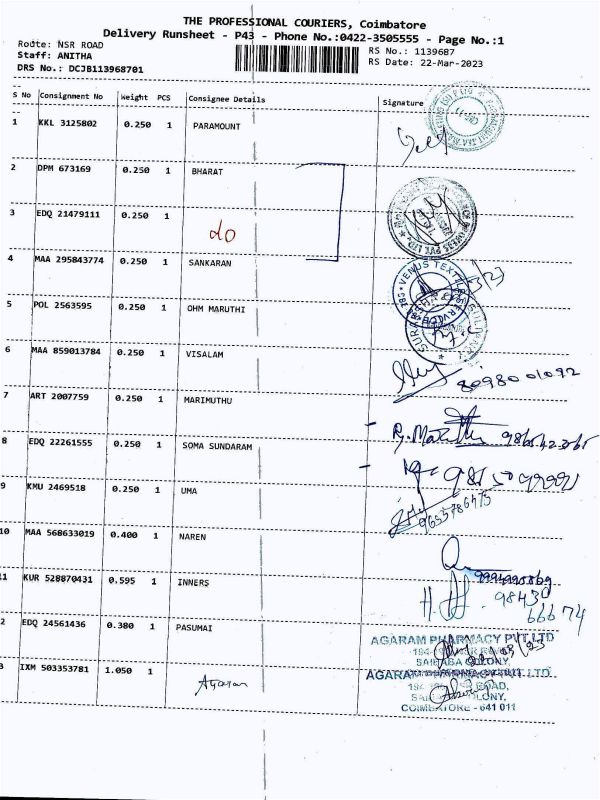 THE PROFESSIONAL COURIERS, Coimbatore
Delivery Runsheet - P43 - Phone No.:0422-3505555 - Page No.:1
Route: NSR ROAD
Staff: ANITHA
DRS No.: DCJB113968701
RS No.: 1139687
RS Date: 22-Mar-2023
S No Consignment No Weight PCS Consignee Details Signature
1 KKL 3125802 0.250 1 PARAMOUNT
2 DPM 673169 0.250 1 BHARAT
3 EDQ 21479111 0.250 1 do
4 MAA 295843774 0.250 1 SANKARAN
VENUS TEXTILE
5 POL 2563595 0.250 1 OHM MARUTHI
6 MAA 859013784 0.250 1 VISALAM
8098001092
7 ART 2007759 0.250 1 MARIMUTHU
8 EDQ 22261555 0.250 1 SOMA SUNDARAM
9 KMU 2469518 0.250 1 UMA
9655786475
10 MAA 568633019 0.400 1 NAREN
11 KUR 528870431 0.595 1 INNERS
98430
66674
2 EDQ 24561436 0.380 1 PASUMAI
AGARAM PHARMACY PVT LTD
SAIBABA COLONY,
3 IXM 503353781 1.050 1 Agaram
AGARAM PHARMACY PVT. LTD.
ROAD,
COLONY,
COIMBATORE - 641 011